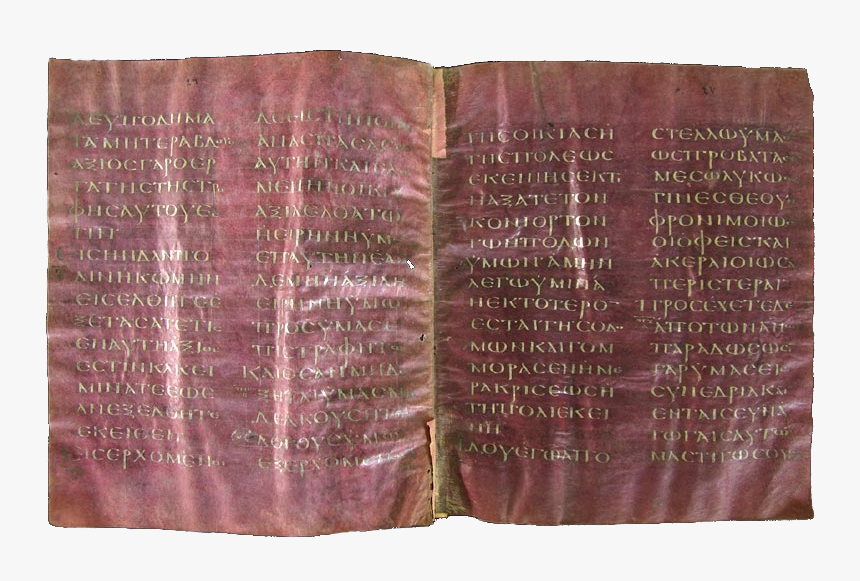 ΔΕΥΠΟΔΗΜΑ
ΤΑΜΗΤΕΡΑΒΔΟΥϹ
ΑΞΙΟϹΓΑΡΟΕΡ
ΓΑΤΗϹΤΗϹΤΡΟ
ΦΗϹΑΥΤΟΥΕϹ
ΤΙΝ
ΕΙϹΗΝΔΑΝΠΟ
ΛΙΝΗΚΩΜΗΝ
ΕΙϹΕΛΘΗΤΕΕ
ΞΕΤΑϹΑΤΕΤΙϹ
ΕΝΑΥΤΗΑΞΙΟϹ
ΕϹΤΙΝΚΑΚΕΙ
ΜΙΝΑΤΕΕΩϹ
ΑΝΕΞΕΛΘΗΤΕ
ΕΚΕΙΘΕΝ
ΕΙϹΕΡΧΟΜΕΝΟΙ
ΑΝΑϹΠΑϹΑϹ
ΑΥΤΗΝΚΑΙΕΑ
ΜΕΝΗΗΟΙΚΙ
ΑΞΙΑΕΛΘΑΤΩ
ΗΕΙΡΗΝΗΥΜ
ΕΠΑΥΤΗΝΕΑ
ΔΕΜΗΗΑΞΙΑΗ
ΕΙΡΗΝΗΥΜΩ
ΠΡΟϹΥΜΑϹΕ
ΠΙϹΤΡΑΦΗΤΩ
ΚΑΙΟϹΑΝΜΗΔΕ
ΞΗΤΑΙΥΜΑϹΜΗ
ΔΕΑΚΟΥϹΗΤ
ΛΟΓΟΥϹΥΜΩ
ΕΞΕΡΧΟΜΕ
ΤΗϹΟΙΚΙΑϹΗ
ΤΗϹΠΟΛΕΩϹ
ΕΚΕΙΝΗϹΕΚΤΙ
ΝΑΞΑΤΕΤΟΝ
ΚΟΝΙΟΡΤΟΝ
ΤΩΝΠΟΔΩΝ
ΥΜΩΝΑΜΗΝ
ΛΕΓΩΥΜΙΝΑ
ΝΕΚΤΟΤΕΡΟ
ΕϹΤΑΙΓΗϹΟΔΟ
ΜΩΝΚΑΙΓΟΜ
ΜΟΡΑϹΕΝΗΜΕ
ΡΑΚΡΙϹΕΩϹΗ
ΤΗΠΟΛΙΕΚΕΙ
ΝΗ
ΙΔΟΥΕΓΩΑΠΟ
ϹΤΕΛΛΩΥΜΑϹ
ΩϹΠΡΟΒΑΤΑ
ΜΕϹΩΛΥΚΩ
ΓΙΝΕϹΘΕΟΥ
ΦΡΟΝΙΜΟΙΩϹ
ΟΙΟΦΕΙϹΚΑΙ
ΑΚΕΡΑΙΟΙΩϹ
ΠΕΡΙϹΤΕΡΑΙ
ΠΡΟϹΕΧΕΤΕΔΕ
ΑΠΟΤΩΝΑΝ
ΠΑΡΑΔΩϹΩϹΙ
ΓΑΡΥΜΑϹΕΙϹ
ϹΥΝΕΔΡΙΑΚΑΙ
ΕΝΤΑΙϹϹΥΝΑ
ΓΩΓΑΙϹΑΥΤΩ
ΜΑϹΤΙΓΩϹΟΥ